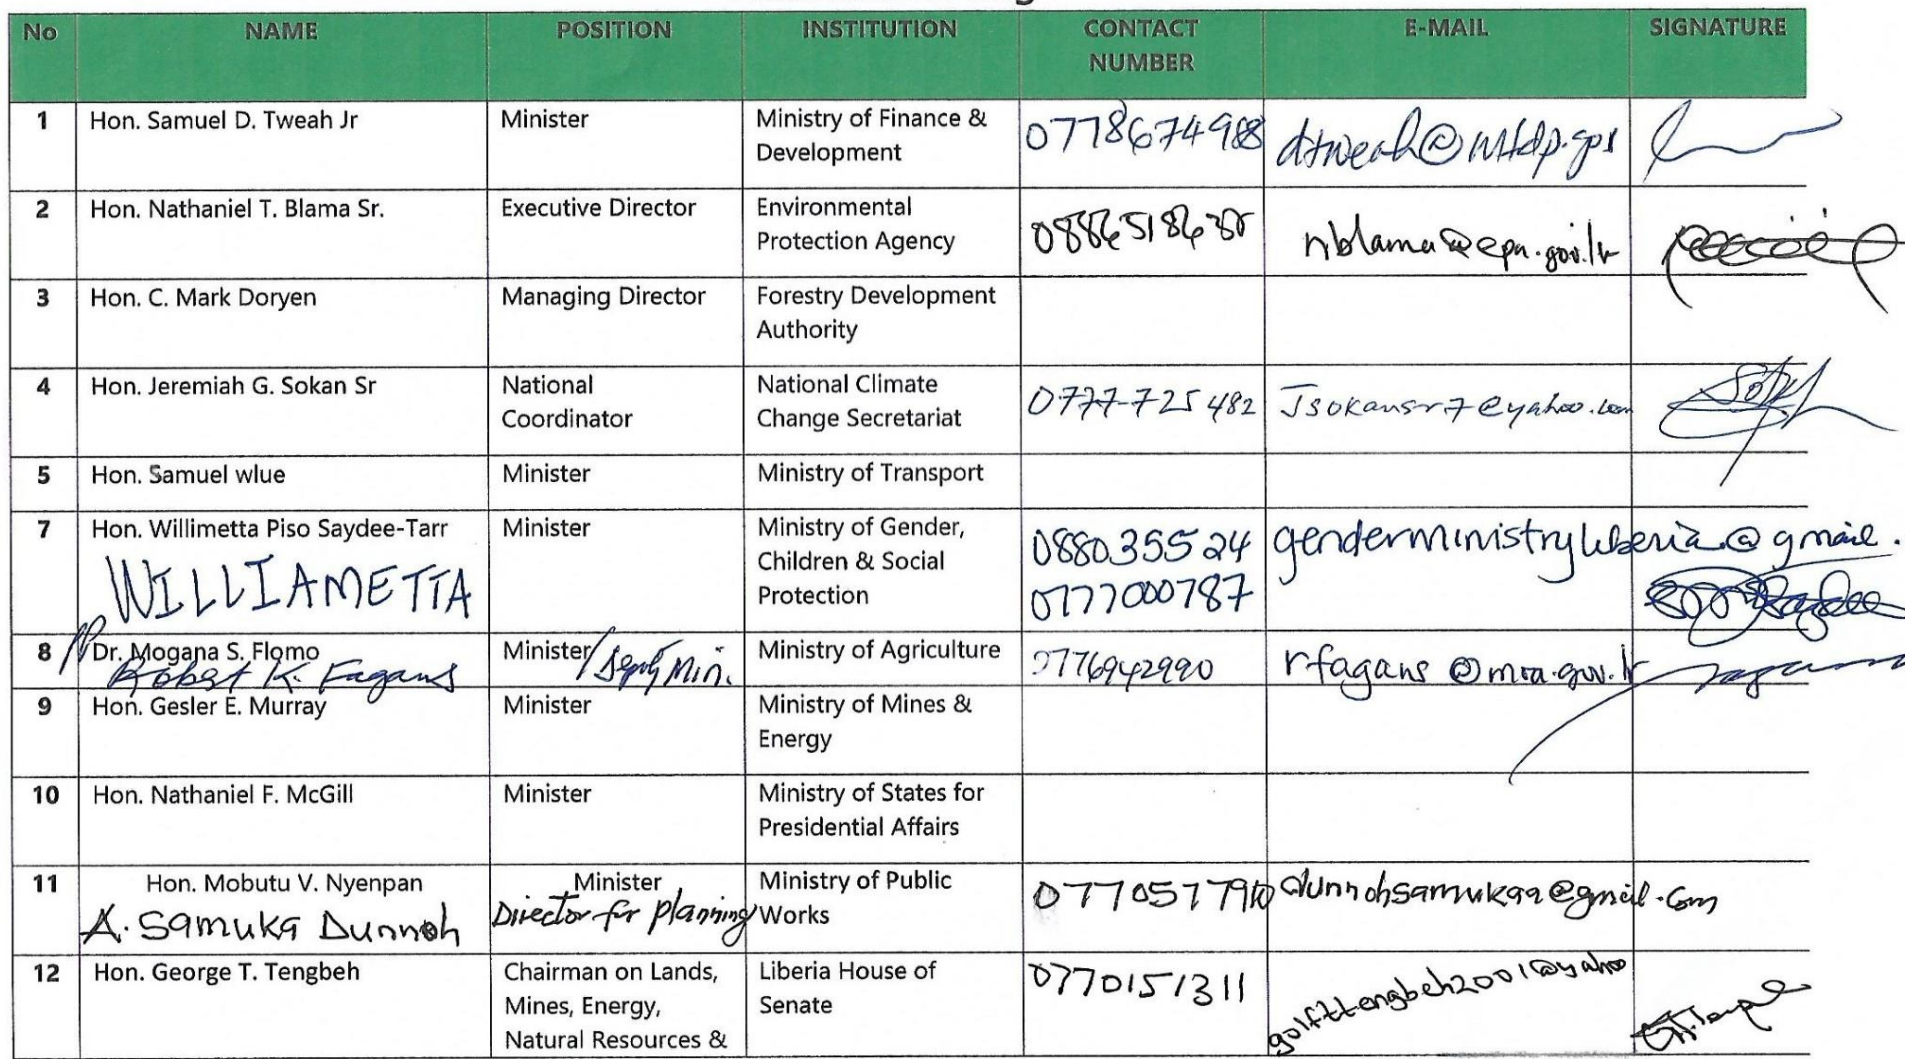 No NAME POSITION INSTITUTION CONTACT NUMBER E-MAIL SIGNATURE
1 Hon. Samuel D. Tweah Jr Minister Ministry of Finance & Development 0778674988
2 Hon. Nathaniel T. Blama Sr. Executive Director Environmental Protection Agency nblama@epa.gov.lr
3 Hon. C. Mark Doryen Managing Director Forestry Development Authority
4 Hon. Jeremiah G. Sokan Sr National Coordinator National Climate Change Secretariat 0777-725482 Jsokansr7@yahoo.com
5 Hon. Samuel wlue Minister Ministry of Transport
7 Hon. Willimetta Piso Saydee-Tarr Minister Ministry of Gender, Children & Social Protection 088035524 genderministryliberia@gmail.
WILLIAMETTA 0777000787
8 Dr. Mogana S. Flomo Minister/Deputy Min. Ministry of Agriculture 0776942990 rfagans@moa.gov.lr
Robert K. Fagans
9 Hon. Gesler E. Murray Minister Ministry of Mines & Energy
10 Hon. Nathaniel F. McGill Minister Ministry of States for Presidential Affairs
11 Hon. Mobutu V. Nyenpan Minister Ministry of Public Works dunnohsamukaa@gmail.com
A. Samuka Dunnoh Director for planning
12 Hon. George T. Tengbeh Chairman on Lands, Mines, Energy, Natural Resources & Liberia House of Senate 0770151311